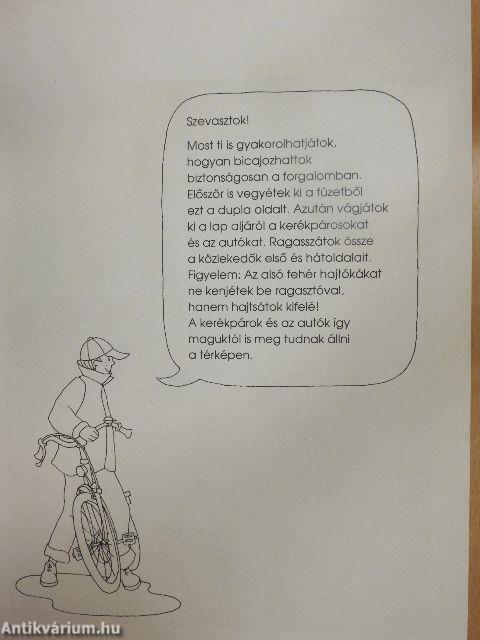 Szevasztok!
Most ti is gyakorolhatjátok,
hogyan bicajozhattok
biztonságosan a forgalomban.
Először is vegyétek ki a füzetből
ezt a dupla oldalt. Azután vágjátok
ki a lap aljáról a kerékpárosokat
és az autókat. Ragasszátok össze
a közlekedők első és hátoldalait.
Figyelem: Az alsó fehér hajtókákat
ne kenjétek be ragasztóval,
hanem hajtsátok kifelé!
A kerékpárok és az autók így
maguktól is meg tudnak állni
a térképen.
Antikvárium.hu